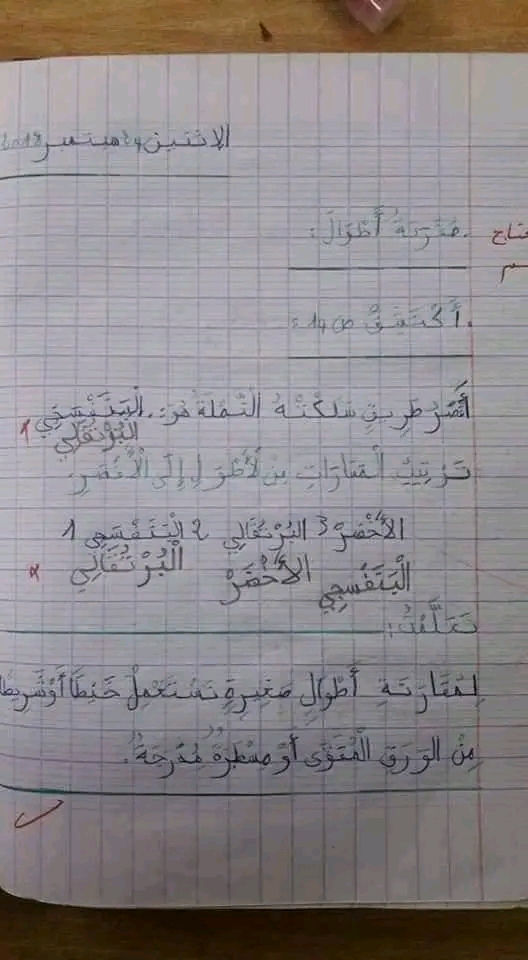 الاثنين 24 سبتمبر 2018
مقارنةُ أطْوَالَ:
أَكْتَشِفُ ص 14:
أقْصَرُ طَرِيقٍ سَلَكَتْهُ النَّمْلَةُ هُوَ: الْبَنَفْسَجِي
الْبُرْتُقَالِي
تَرْتِيبُ الْمَسَارَاتِ مِنَ الْأَطْوَلِ إِلَى الْأَقْصَرِ
الأَخْضَرْ 3 البُرْتُقَالِي 2 الْبَنَفْسَجِي 1
الْبَنَفْسَجِي الأَخْضَرْ الْبُرْتُقَالِي
تَعَلَّمْتُ:
لِمُقَارَنَةِ أَطْوَالٍ صَغِيرَةٍ نَسْتَعْمِلُ خَيْطًا أَوْ شَرِيطًا
مِنَ الوَرَقِ الْمُقَوَّى أَوْ مِسْطَرَةً مُدَرَّجَةً.